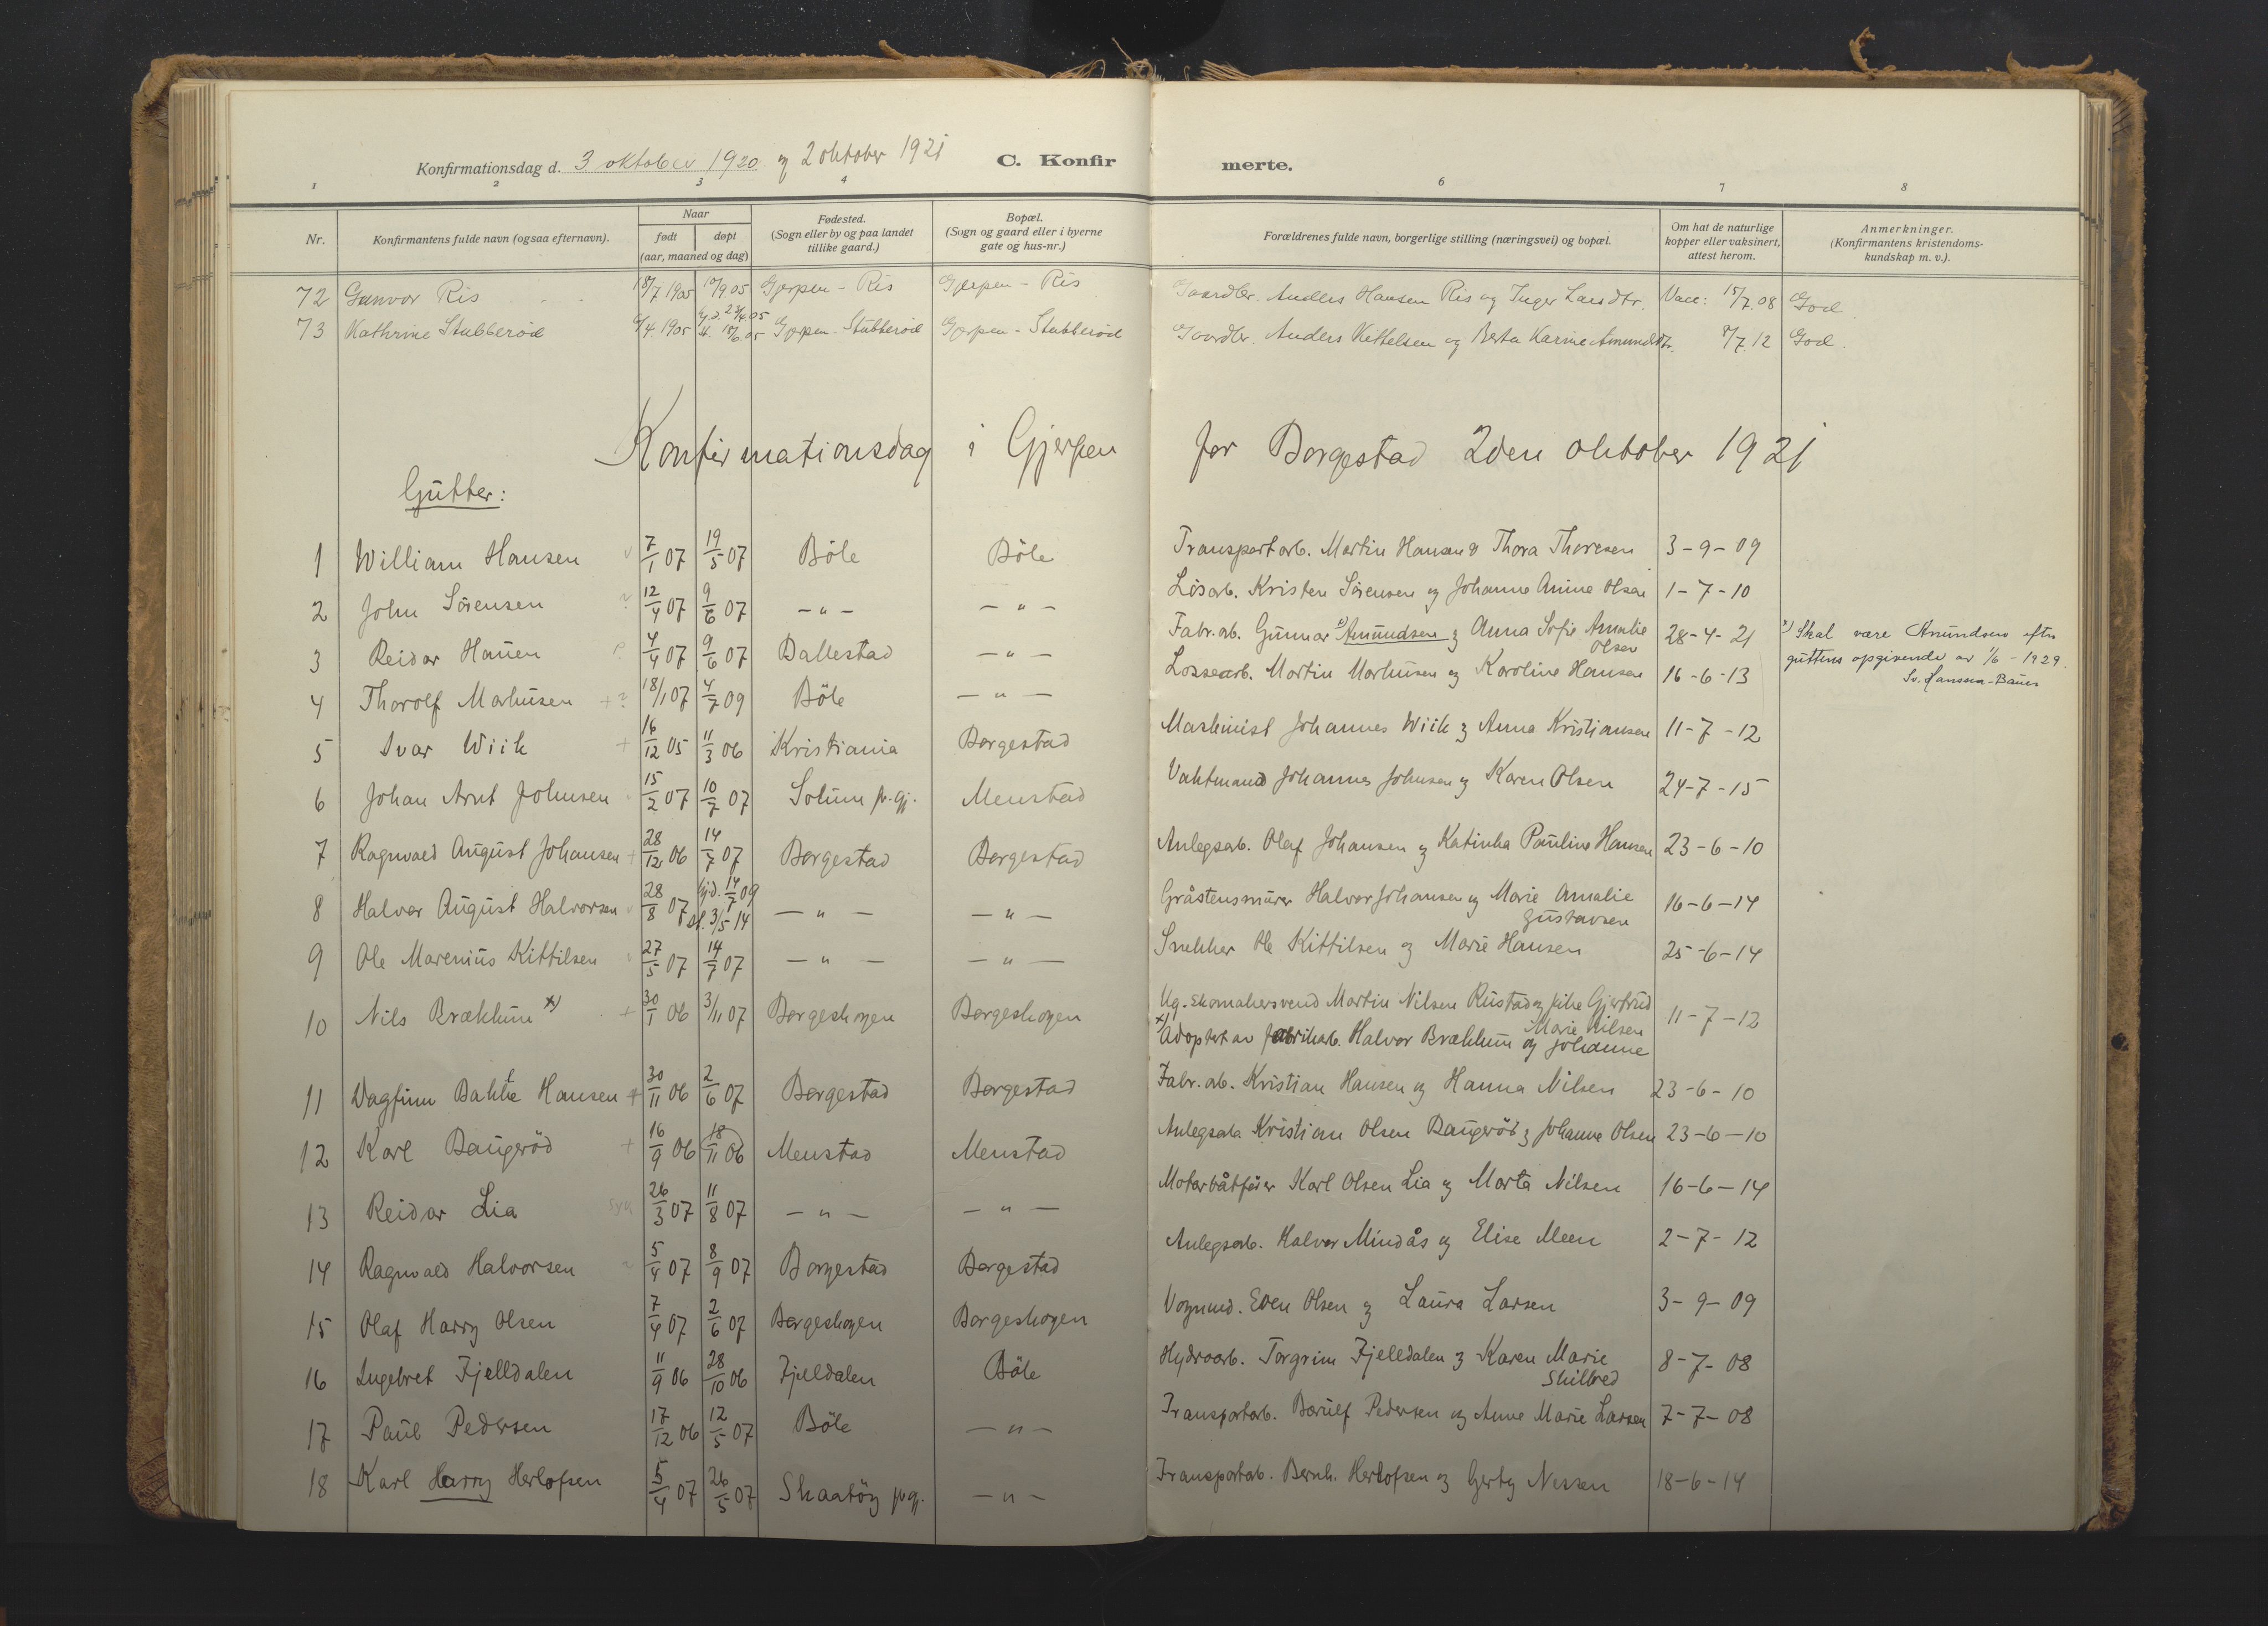 Konfirmationsdag d. 3 oktober 1920 og 2 oktober 1921 C. Konfir merte.
1 2 3 4 6 7 8
Nr. Konfirmantens fulde navn (ogsaa efternavn). Naar født døpt (aar, maaned og dag) Fødested. (Sogn eller by og paa landet tillike gaard.) Bopæl. (Sogn og gaard eller i byerne gate og hus-nr.) Forældrenes fulde navn, borgerlige stilling (næringsvei) og bopæl. Om hat de naturlige kopper eller vaksinert, attest herom. Anmerkninger. (Konfirmantens kristendoms-kundskap m. v.).
72 Gunvor Ris 18/7 1905 10/9.05 Gjerpen - Ris Gjerpen - Ris Gaardbr. Anders Hansen Ris og Inger Larsdtr. Vacc: 15/7.08 God.
73 Kathrine Stubberød 6/4.1905 hj.d. 23/4.05 st. 18/6.05 Gjerpen - Stubberød Gjerpen - Stubberød Gaardbr. Anders Kittelsen og Berta Karine Amundsdtr. 8/7.12 God.
Konfirmationsdag i Gjerpen for Borgestad 2den oktober 1921
Gutter:
1 William Hansen v 7/1 07 19/5 07 Böle Böle Transportarb. Martin Hansen & Thora Thoresen 3-9-09
2 John Sörensen ? 12/4 07 9/6 07 -"- -"- Lösarb. Kristen Sörensen og Johanne Anine Olsen 1-7-10
3 Reidar Hauen ? 4/4 07 9/6 07 Ballestad -"- Fabr.arb. Gunnar x) Amundsen og Anna Sofie Amalie Olsen 28-4-21 x) Skal være Knundsen efter
guttens opgivende av 1/6 - 1929.
Sv. Hanssen-Bauer
4 Thorolf Markusen +? 18/1 07 4/7 09 Böle -"- Lossearb. Martin Markusen og Karoline Hansen 16-6-13
5 Ivar Wiik + 16/12 05 11/3 06 Kristiania Borgestad Maskinist Johannes Wiik og Anna Kristiansen 11-7-12
6 Johan Arnt Johnsen 15/2 07 10/7 07 Solum p.gj. Menstad Vaktmand Johannes Johnsen og Karen Olsen 24-7-15
7 Ragnvald August Johansen + 28/12 06 14/7 07 Borgestad Borgestad Anlegsarb. Olaf Johansen og Katinka Pauline Hansen 23-6-10
8 Halvor August Halvorsen v 28/8 07 hjd. 14/7 09 st. 3/5 14 -"- -"- Gråstensmurer Halvor Johansen og Marie Amalie Gustavsen 16-6-14
9 Ole Marenius Kittilsen v 27/5 07 14/7 07 -"- -"- Snekker Ole Kittilsen og Marie Hansen 25-6-14
10 Nils Bræklum x) + 30/1 06 3/11 07 Borgeskogen Borgeskogen Ug. skomakersvend Martin Nilsen Rustad og pike Gjertrud Marie Nilsen 11-7-12
x) Adoptert av fabrikarb. Halvor Bræklum og Johanne
11 Dagfinn Bakke Hansen + 30/11 06 2/6 07 Borgestad Borgestad Fabr.arb. Kristian Hansen og Hanna Nilsen 23-6-10
12 Karl Baugeröd + 16/9 06 18/11 06 Menstad Menstad Anlegsarb. Kristian Olsen Baugeröd og Johanne Olsen 23-6-10
13 Reidar Lia syk 26/3 07 11/8 07 -"- -"- Motorbåtförer Karl Olsen Lia og Marta Nilsen 16-6-14
14 Ragnvald Halvorsen 5/4 07 8/9 07 Borgestad Borgestad Anlegsarb. Halvor Mindås og Elise Meen 2-7-12
15 Olaf Harry Olsen 7/4 07 2/6 07 Borgeskogen Borgeskogen Vognmd. Even Olsen og Laura Larsen 3-9-09
16 Ingebret Fjelldalen 11/9 06 28/10 06 Fjelldalen Böle Hydroarb. Torgrim Fjelldalen og Karen Marie Skilbred 8-7-08
17 Paul Pedersen 17/12 06 12/5 07 Böle -"- Transportarb. Barulf Pedersen og Anne Marie Larsen 7-7-08
18 Karl Harry Herlofsen 5/4 07 26/5 07 Skaatöy p.gj. -"- Transportarb. Bernh. Herlofsen og Gerty Nessen 18-6-14